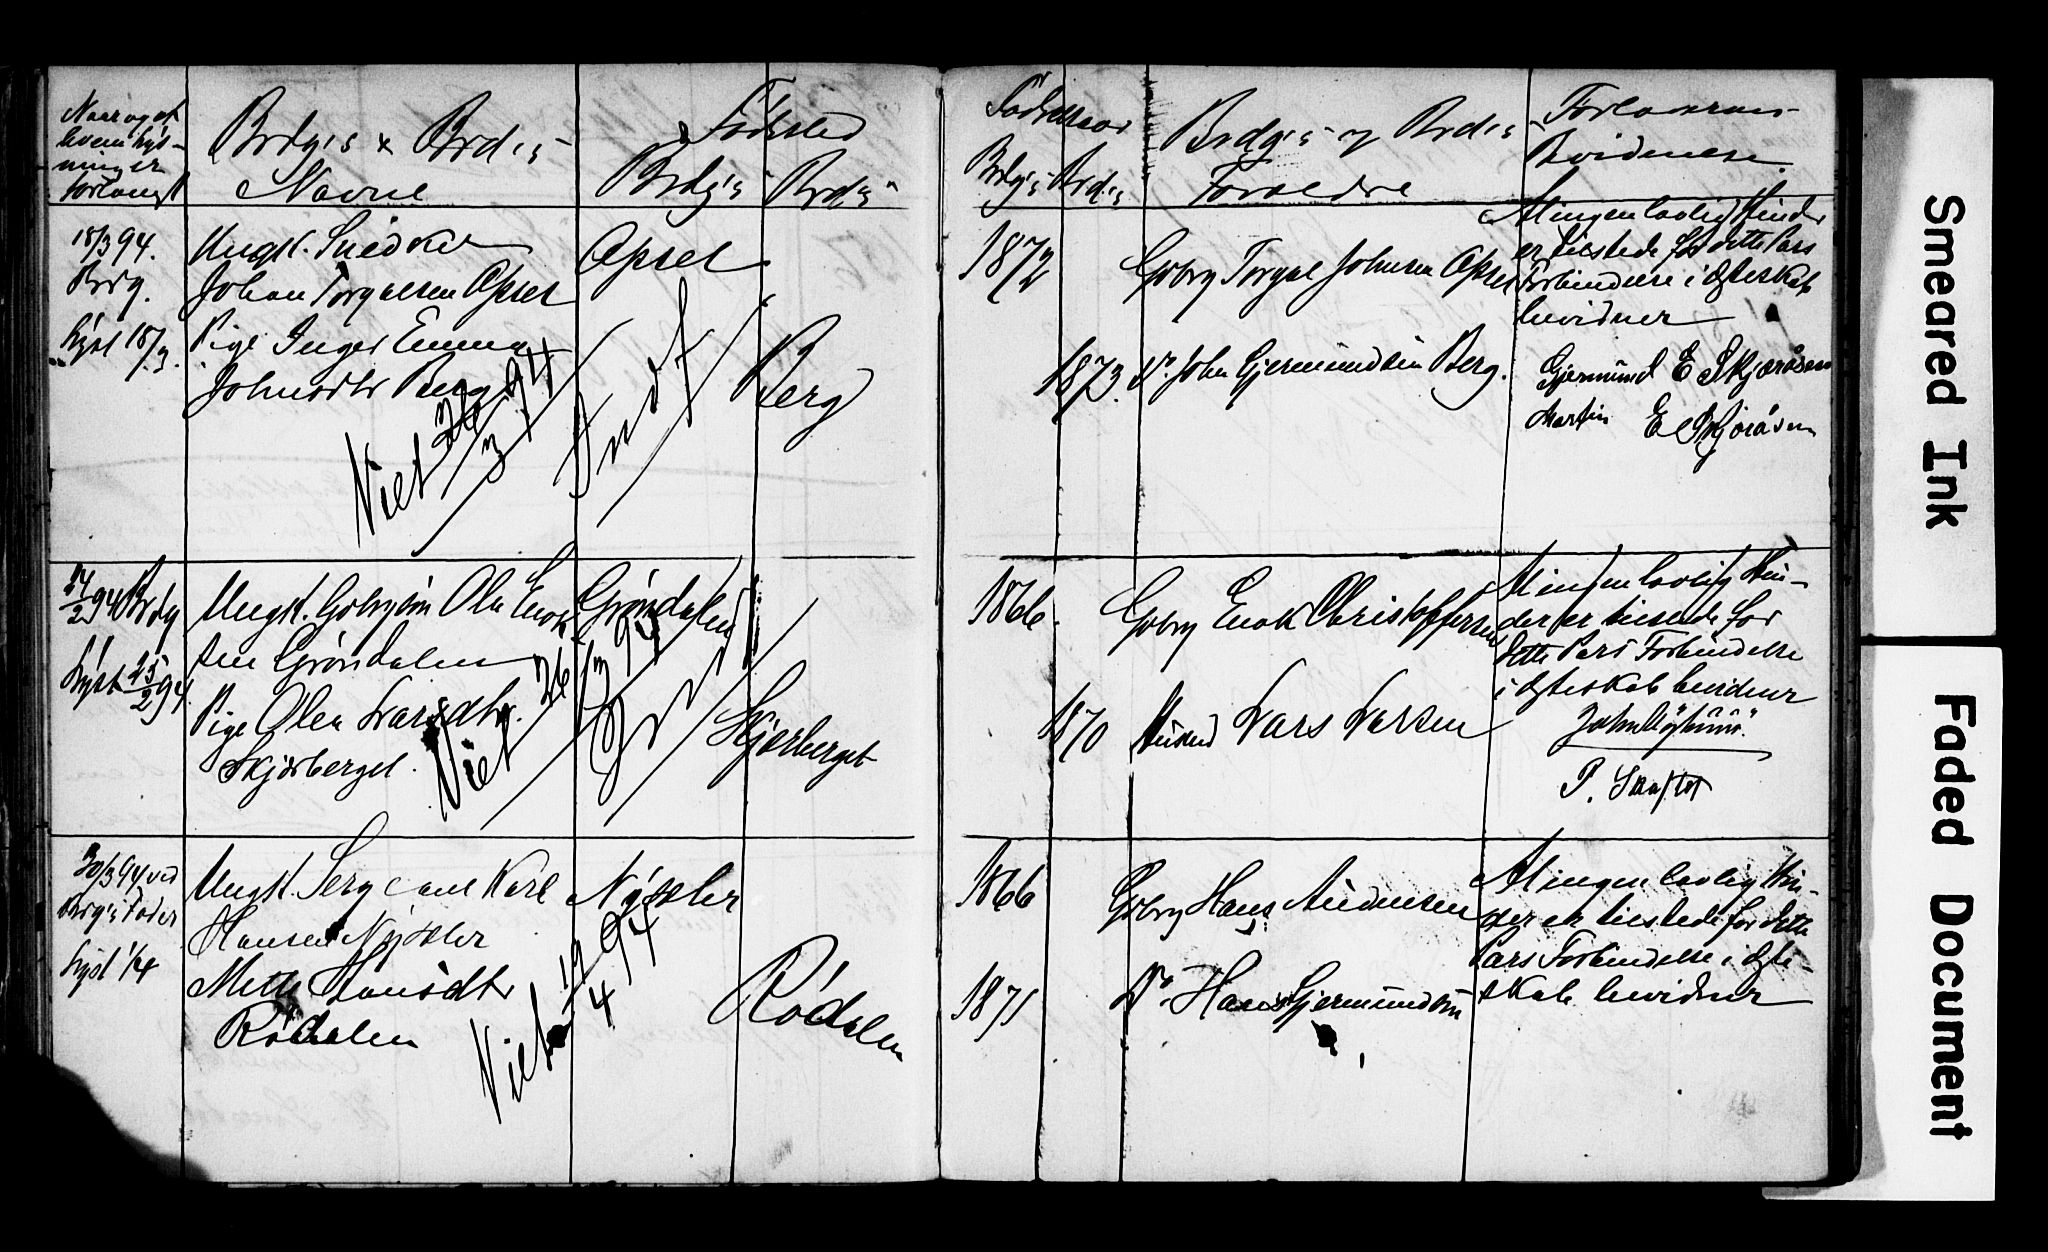 Naar og af
hvem lys-
ninger
forlangt
Brdg's & Brd's
Navne
Fødested
Brdg's Brd's
Fødselsaar
Brdg's Brd's
Brdg's og Brd's
Forældre
Forlovernes
Bevidnelse
18/3 94.
Brdg.
Lyst 18/3.
Ungk. Snedker
Johan Torgalsen Opsal
Pige Inger Emma
Johnsdtr Berg
Viet 26/3 94
Indf
Opsal
Berg
1872
1873.
Gbrg Torgal Johnsen Opsal
Do John Gjermundsen Berg.
At ingen lovlig Hinder
er tilstede for dette Pars
Forbindelse i Ægteskab
bevidner
Gjermund E Skjæråsen
Martin E Skjæråsen
24/2 94 Brdg
Lyst 25/2 94.
Ungk. Gbrgsøn Ole Enok
sen Grøndalen
Pige Olea Larsdtr.
Skjærberget.
Viet 26/3 94
Indf
Grøndalen
Skjærberget
1866.
1870
Gbrg Enok Christoffersen
Husmd Lars Larsen
At ingen lovlig Hin-
der er tilstede for
dette Pars Forbindelse
i Ægteskab bevidner
P.
30/3 94 ved
Brdg's Fader
Lyst 1/4
Ungk. Karl
Hansen Nysæter
Mette Hansdtr
Rødalen
Viet 19/4 94
Nysæter
Rødalen
1866
1871
Gbrg Hans Audensen
Do Hans Gjermundsen
At ingen lovlig Hin-
der er tilstede for dette
Pars Forbindelse i Ægte-
skab bevidner
Smeared Ink
Faded Document